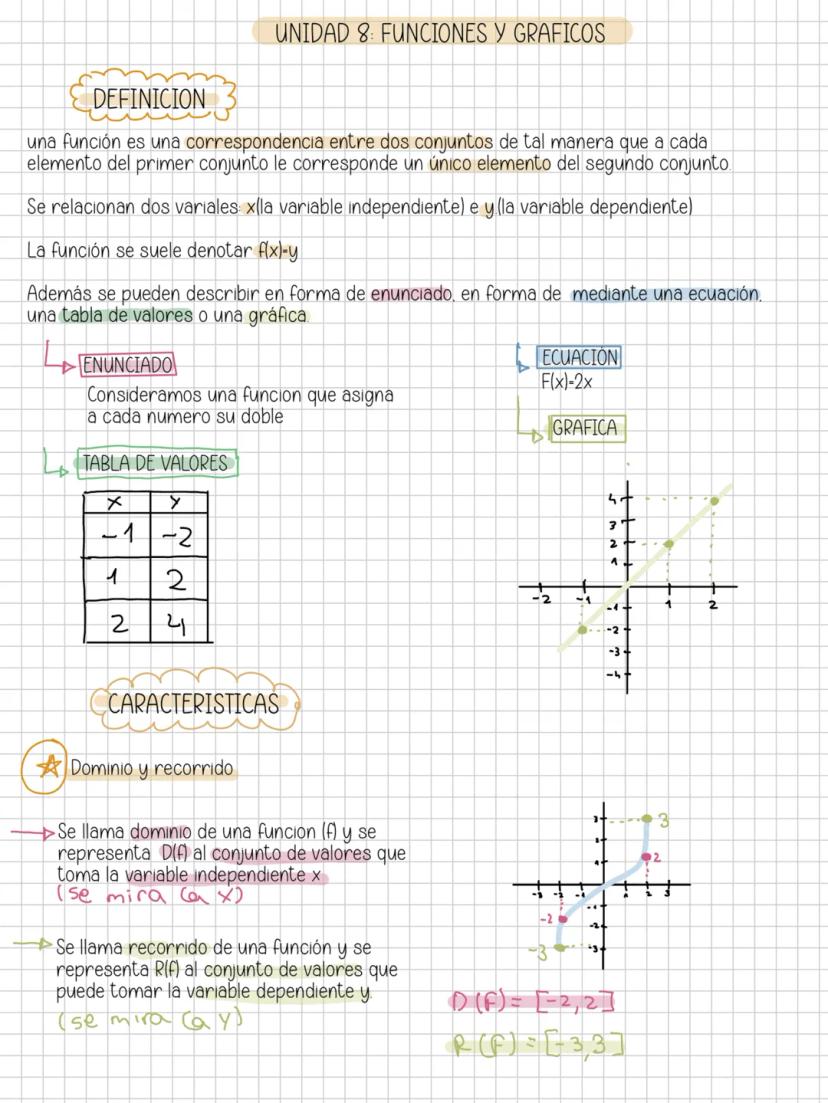 UNIDAD 8: FUNCIONES Y GRAFICOS
DEFINICION
una función es una correspondencia entre dos conjuntos de tal manera que a cada
elemento del primer conjunto le corresponde un único elemento del segundo conjunto.
Se relacionan dos variales: x(la variable independiente) e y (la variable dependiente)
La función se suele denotar f(x)=y
Además se pueden describir en forma de enunciado, en forma de mediante una ecuación,
una tabla de valores o una gráfica.
ENUNCIADO
Consideramos una funcion que asigna
a cada numero su doble
ECUACIÓN
F(x)=2x
GRAFICA
TABLA DE VALORES
x y
-1 -2
1 2
2 4
4
3
2
1
-2 -1 1 2
-1
-2
-3
-4
CARACTERISTICAS
Dominio y recorrido
Se llama dominio de una funcion (f) y se
representa D(f) al conjunto de valores que
toma la variable independiente x
(se mira la x)
Se llama recorrido de una función y se
representa R(f) al conjunto de valores que
puede tomar la variable dependiente y.
(se mira la y)
3
2
-2
-3
D(F)= [-2,2]
R(F)= [-3,3]